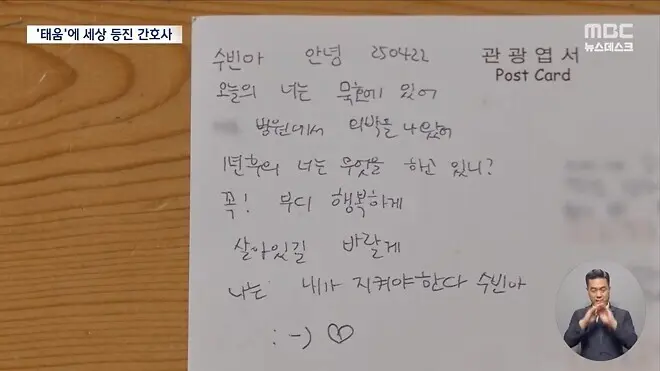 '태움'에 세상 등진 간호사
MBC
뉴스데스크
관광엽서
Post Card
수빈아 안녕 250422
오늘의 너는 묵호에 있어
병원에서 외박을 나왔어
1년후의 너는 무엇을 하고 있니?
꼭! 부디 행복하게
살아있길 바랄게
나는 내가 지켜야한다 수빈아
:-) ♡